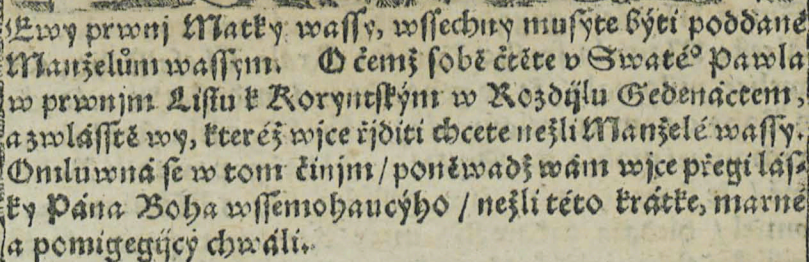 Ewy prwnj Matky wassy, wssechny musyte býti poddané
Manželům wassym. O čemž sobě čtěte v Swatéº Pawla
w prwnjm Listu k Koryntským w Rozdijlu Gedenáctem,
a zwlásstě wy, kteréž wjce řjditi chcete nežli Manželé wassy.
Omluwná se w tom činjm / poněwadž wám wjce přegi lás-
ky Pána Boha wssemohaucýho / nežli této krátke, marné
a pomigegijcý chwáli.